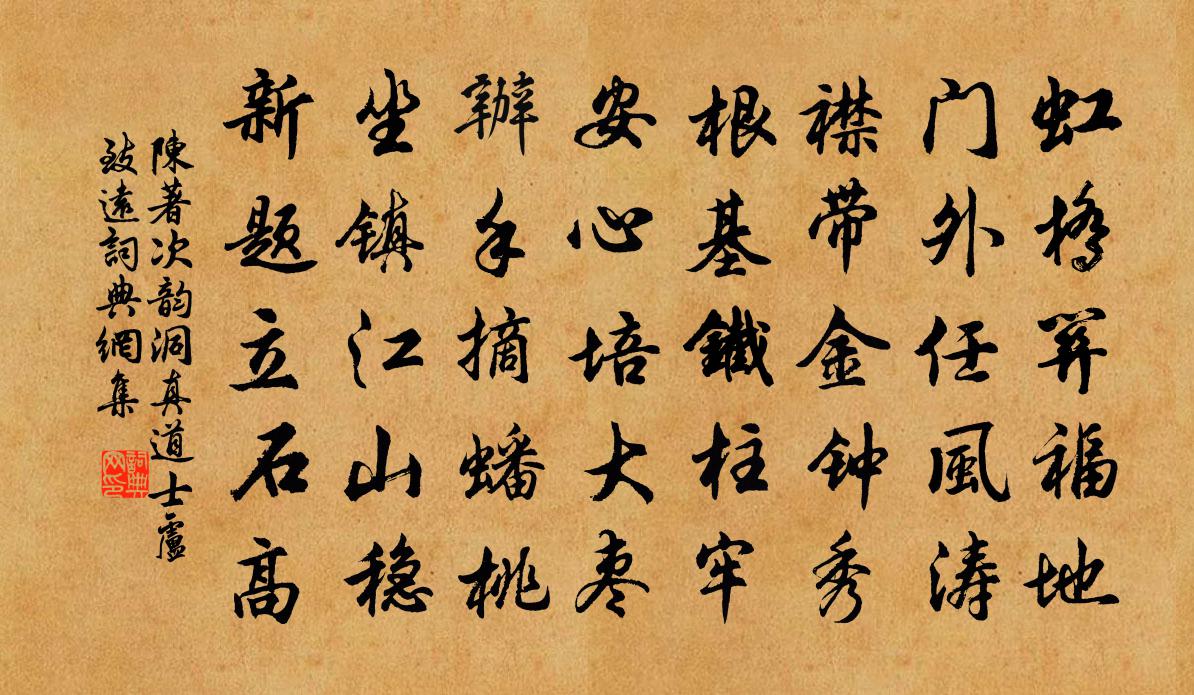 虹桥笄福地
门外任風涛
襟带金钟秀
根基鐵柱牢
安心培大枣
辦手摘蟠桃
坐镇江山稳
新题立石高
陳著次韵洞真道士盧
致遠詞典網集
詞典网印